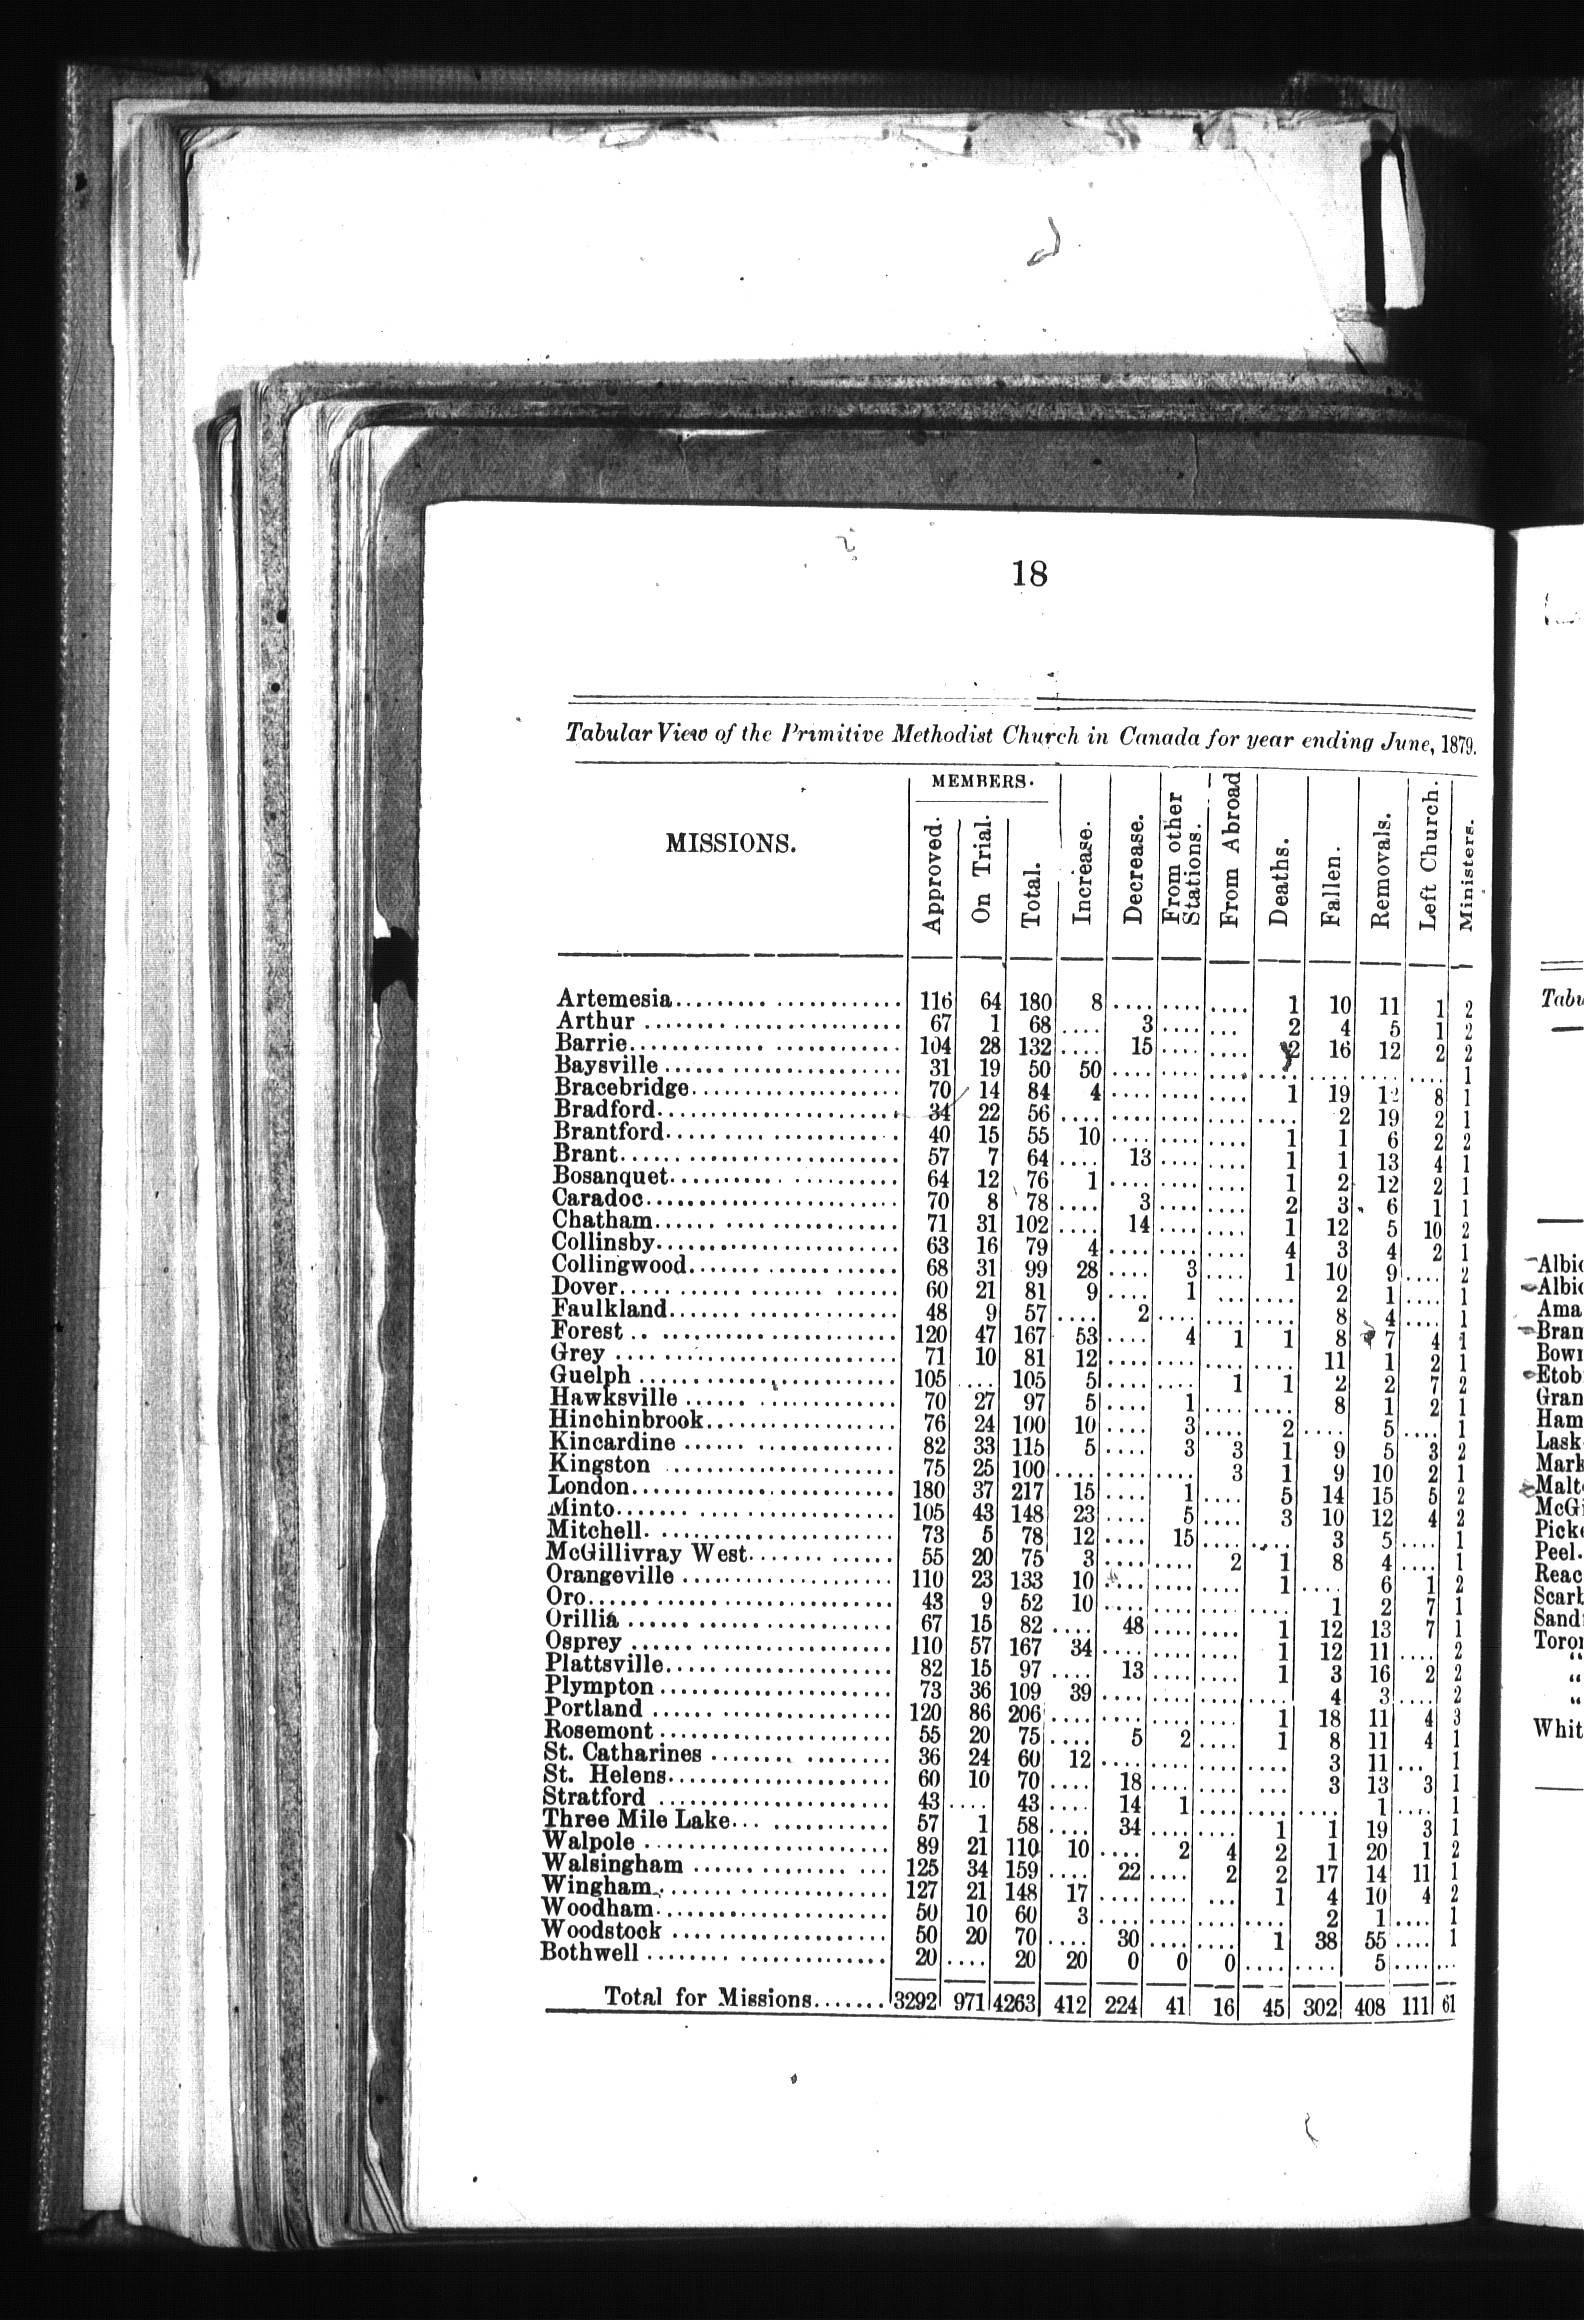 18
Tabular View of the Primitive Methodist Church in Canada for year ending June, 1879.
MISSIONS. MEMBERS. Approved. On Trial. Total. Increase. Decrease. From other Stations. From Abroad Deaths. Fallen. Removals. Left Church. Ministers.
Artemesia........ ............ 116 64 180 8 .... .... .... 1 10 11 1 2
Arthur ........ ............... 67 1 68 .... 3 .... ... 2 4 5 1 2
Barrie............. ............ 104 28 132 .... 15 .... .... 2 16 12 2 2
Baysville ........ ............ 31 19 50 50 .... .... .... .... .... .... .... 1
Bracebridge..................... 70 14 84 4 .... .... .... 1 19 12 8 1
Bradford........................ 34 22 56 .... .... .... .... .... 2 19 2 1
Brantford....................... 40 15 55 10 .... .... .... 1 1 6 2 2
Brant........................... 57 7 64 .... 13 .... .... 1 1 13 4 1
Bosanquet........... ........... 64 12 76 1 .... .... .... 1 2 12 2 1
Caradoc......................... 70 8 78 .... 3 .... .... 2 3 6 1 1
Chatham...... .................. 71 31 102 .... 14 .... .... 1 12 5 10 2
Collinsby....................... 63 16 79 4 .... .... .... 4 3 4 2 1
Collingwood....... ............. 68 31 99 28 .... 3 .... 1 10 9 .... 2
Dover............... ...... ...... 60 21 81 9 .... 1 ... .... 2 1 .... 1
Faulkland....... ............... 48 9 57 .... 2 .... .... .... 8 4 .... 1
Forest .. ...................... 120 47 167 53 .... 4 1 1 8 7 4 1
Grey ........................... 71 10 81 12 .... .... .... .... 11 1 2 1
Guelph ......................... 105 .... 105 5 .... .... 1 1 2 2 7 2
Hawksville ...... .............. 70 27 97 5 .... 1 .... .... 8 1 2 1
Hinchinbrook.................... 76 24 100 10 .... 3 .... 2 .... 5 .... 1
Kincardine ...... .............. 82 33 115 5 .... 3 3 1 9 5 3 2
Kingston ....................... 75 25 100 .... .... .... 3 1 9 10 2 1
London.......................... 180 37 217 15 .... 1 .... 5 14 15 5 2
Minto....... ................... 105 43 148 23 .... 5 .... 3 10 12 4 2
Mitchell. ...................... 73 5 78 12 .... 15 .... .... 3 5 .... 1
McGillivray West........ ....... 55 20 75 3 .... .... 2 1 8 4 .... 1
Orangeville .................... 110 23 133 10 .... .... .... 1 .... 6 1 2
Oro............................. 43 9 52 10 .... .... .... .... 1 2 7 1
Orillia ...... ................. 67 15 82 .... 48 .... .... 1 12 13 7 1
Osprey ....... ................. 110 57 167 34 .... .... .... 1 12 11 .... 2
Plattsville..................... 82 15 97 .... 13 .... .... 1 3 16 2 2
Plympton ....................... 73 36 109 39 .... .... .... .... 4 3 .... 2
Portland ...... ................ 120 86 206 .... .... .... .... 1 18 11 4 3
Rosemont ....................... 55 20 75 .... 5 2 .... 1 8 11 4 1
St. Catharines ........ ........ 36 24 60 12 .... .... .... .... 3 11 ... 1
St. Helens...................... 60 10 70 .... 18 .... .... .... 3 13 3 1
Stratford ...................... 43 .... 43 .... 14 1 .... .... .... 1 .... 1
Three Mile Lake... ............ 57 1 58 .... 34 .... .... 1 1 19 3 1
Walpole ........................ 89 21 110 10 .... 2 4 2 1 20 1 2
Walsingham .............. ... 125 34 159 .... 22 .... 2 2 17 14 11 1
Wingham........ ............... 127 21 148 17 .... .... ... 1 4 10 4 2
Woodham......................... 50 10 60 3 .... .... .... .... 2 1 .... 1
Woodstock ...................... 50 20 70 .... 30 .... .... 1 38 55 .... 1
Bothwell ........ .............. 20 .... 20 20 0 0 0 .... .... 5 .... ...
Total for Missions....... 3292 971 4263 412 224 41 16 45 302 408 111 61
Tabu
Albio
Albio
Ama
Bran
Bow
Etob
Gran
Ham
Lask
Mark
Malt
McG
Pick
Peel.
Reac
Scar
Sand
Toro
“
“
“
Whit